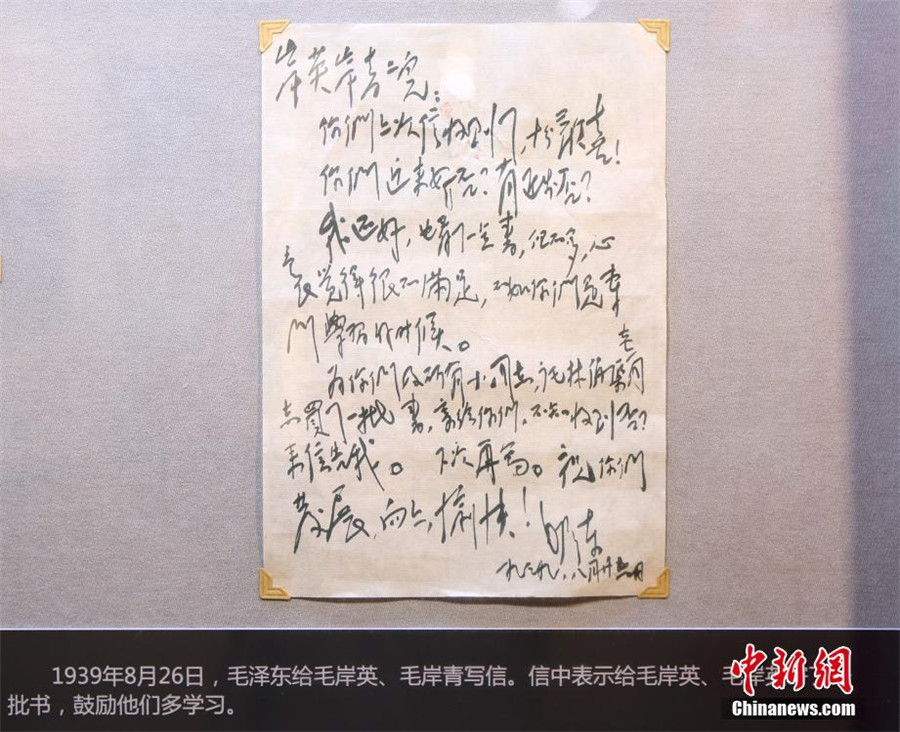 岸英岸青二兒：
你們上次信收到了，十分歡喜！
你們近来好否？有進步否？
我还好，也看了一点書，但不多，心
里觉得很不滿足，不如你們是專
门學習的时候。
为你們及所有小同志，託林伯渠同
志買了一批書，寄给你們，不知收到否？
来信告我。下次再写。祝你們
發展，向上，愉快！
毛澤東
一九三九，八月廿六日
1939年8月26日，毛泽东给毛岸英、毛岸青写信。信中表示给毛岸英、毛岸
批书，鼓励他们多学习。
中新网
Chinanews.com